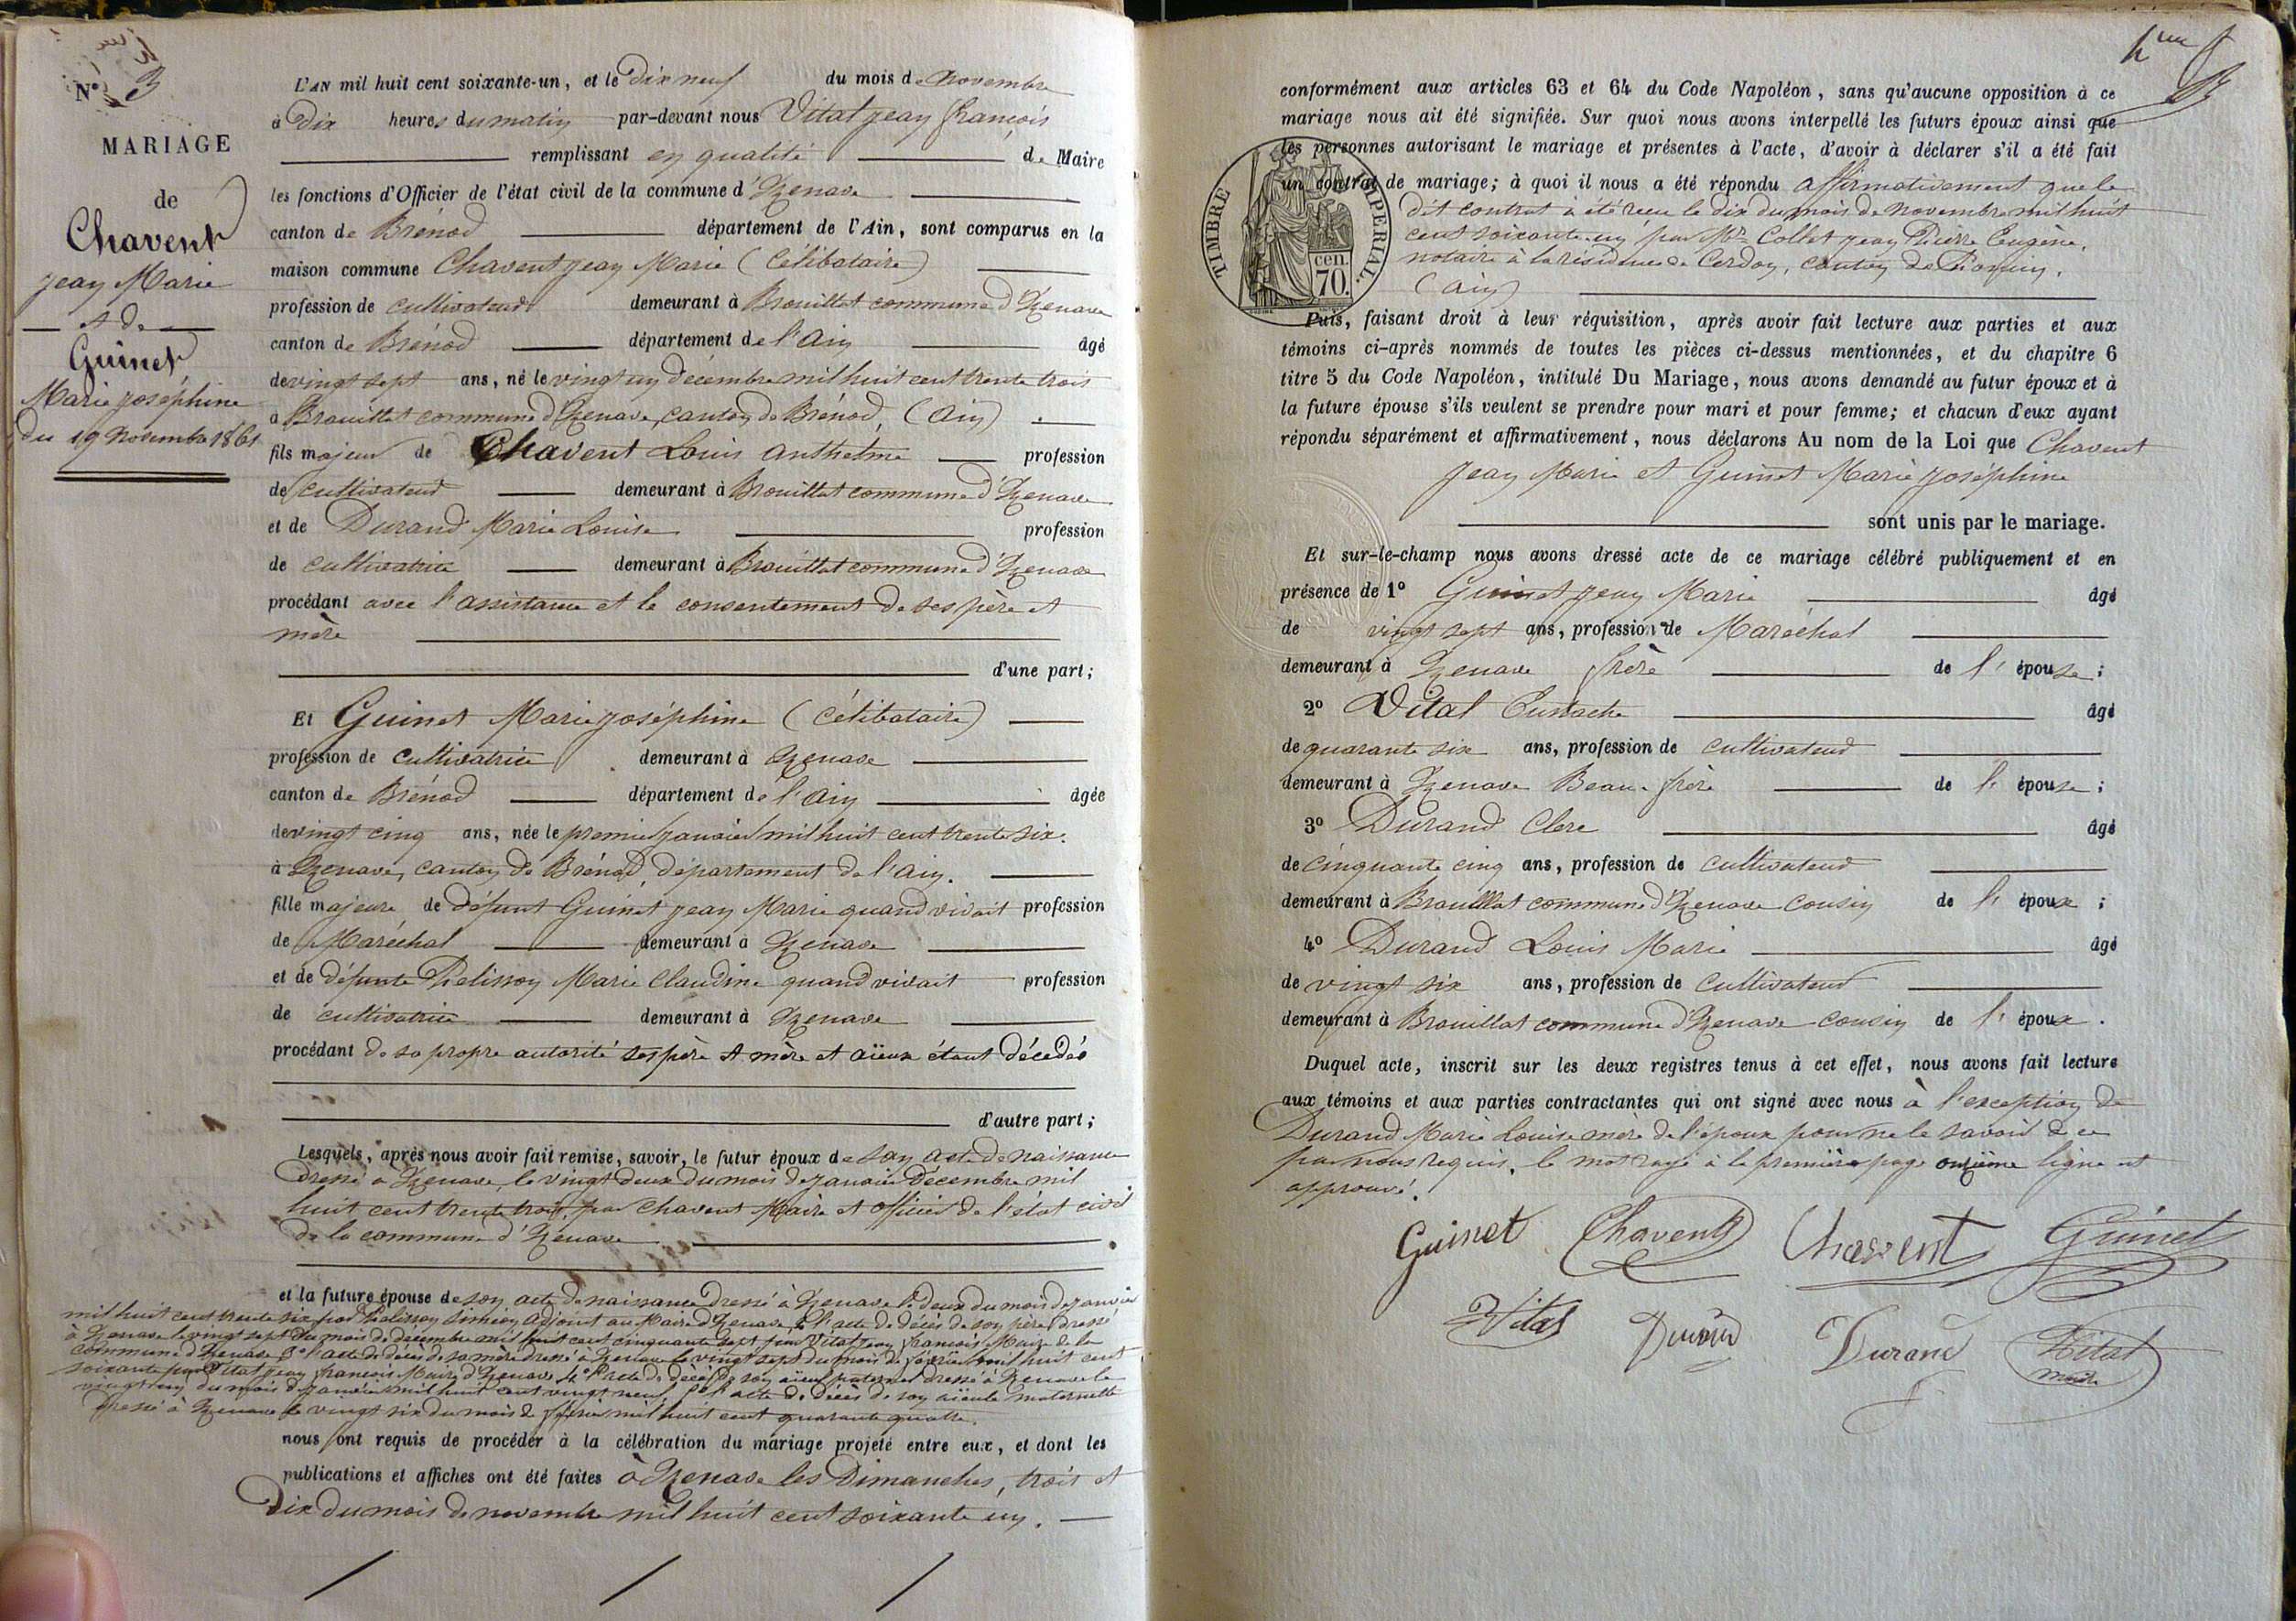 N° 3
MARIAGE
de
Chavent
Jean Marie
et de
Guinet
Marie joséphine
du 19 novembre 1861
L'AN mil huit cent soixante-un, et le dix neuf du mois de novembre
à dix heures du matin par-devant nous Vital jean françois
remplissant en qualité de Maire
les fonctions d'Officier de l'état civil de la commune d'Izenave
canton de Brénod département de l'Ain, sont comparus en la
maison commune Chavent jean Marie (Célibataire)
profession de cultivateur demeurant à Brouillat commune d'Izenave
canton de Brénod département de l'Ain âgé
de vingt sept ans, né le vingt un décembre mil huit cent trente trois
à Brouillat commune d'Izenave, canton de Brénod, (Ain)
fils majeur de Chavent Louis Anthelme profession
de cultivateur demeurant à Brouillat commune d'Izenave
et de Durand Marie Louise profession
de cultivatrice demeurant à Brouillat commune d'Izenave
procédant avec l'assistance et le consentement de ses père et
mère
d'une part;
Et Guinet Marie joséphine (célibataire)
profession de cultivatrice demeurant à Izenave
canton de Brénod département de l'Ain âgée
de vingt cinq ans, née le premier janvier mil huit cent trente six.
à Izenave, canton de Brénod, département de l'Ain.
fille majeure de défunt Guinet jean Marie quand vivait profession
de Maréchal demeurant à Izenave
et de défunte Pelisson Marie Claudine quand vivait profession
de cultivatrice demeurant à Izenave
procédant de sa propre autorité ses père et mère et aïeux étant décédés
d'autre part;
Lesquels, après nous avoir fait remise, savoir, le futur époux de son acte de naissance
dressé à Izenave, le vingt deux du mois de janvier décembre mil
huit cent trente trois, par Chavent Maire et officier de l'état civil
de la commune d'Izenave
et la future épouse de son acte de naissance dressé à Izenave le deux du mois de janvier
mil huit cent trente six par Pelisson Siméon adjoint au Maire d'Izenave, 2° l'acte de décès de son père dressé
à Izenave le vingt sept du mois de décembre mil huit cent cinquante sept par Vital jean françois Maire de la
commune d'Izenave 3° l'acte de décès de sa mère dressé à Izenave le vingt sept du mois de février mil huit cent
soixante par Vital jean françois Maire d'Izenave, 4° l'acte de décès de son aïeul paternel dressé à Izenave le
vingt un du mois de janvier mil huit cent vingt neuf, 5° l'acte de décès de son aïeule maternelle
dressé à Izenave le vingt six du mois de février mil huit cent quarante quatre.
nous ont requis de procéder à la célébration du mariage projeté entre eux, et dont les
publications et affiches ont été faites à Izenave les Dimanches, trois et
dix du mois de novembre mil huit cent soixante un.
conformément aux articles 63 et 64 du Code Napoléon, sans qu'aucune opposition à ce
mariage nous ait été signifiée. Sur quoi nous avons interpellé les futurs époux ainsi que
les personnes autorisant le mariage et présentes à l'acte, d'avoir à déclarer s'il a été fait
un contrat de mariage; à quoi il nous a été répondu affirmativement que le
dit contrat à été reçu le dix du mois de novembre mil huit
cent soixante un par Me Collet jean Pierre Eugène,
notaire à la résidence de Cerdon, canton de Poncin,
(Ain)
TIMBRE IMPERIAL
70. cen.
Puis, faisant droit à leur réquisition, après avoir fait lecture aux parties et aux
témoins ci-après nommés de toutes les pièces ci-dessus mentionnées, et du chapitre 6
titre 5 du Code Napoléon, intitulé Du Mariage, nous avons demandé au futur époux et à
la future épouse s'ils veulent se prendre pour mari et pour femme; et chacun d'eux ayant
répondu séparément et affirmativement, nous déclarons Au nom de la Loi que Chavent
Jean Marie et Guinet Marie joséphine
sont unis par le mariage.
Et sur-le-champ nous avons dressé acte de ce mariage célébré publiquement et en
présence de 1° Guinet jean Marie âgé
de vingt sept ans, profession de Maréchal
demeurant à Izenave frère de l'épouse;
2° Vital Eustache âgé
de quarante six ans, profession de cultivateur
demeurant à Izenave Beau-frère de l'épouse;
3° Durand Clere âgé
de cinquante cinq ans, profession de cultivateur
demeurant à Brouillat commune d'Izenave cousin de l'époux;
4° Durand Louis Marie âgé
de vingt six ans, profession de cultivateur
demeurant à Brouillat commune d'Izenave cousin de l'époux.
Duquel acte, inscrit sur les deux registres tenus à cet effet, nous avons fait lecture
aux témoins et aux parties contractantes qui ont signé avec nous à l'exception de
Durand Marie Louise mère de l'époux pour ne le savoir de ce
par nous requis. le mot rayé à la première page onzième ligne est
approuvé.
Guinet Chavent Chavent Guinet
Vital Durand Durand Vital
maire